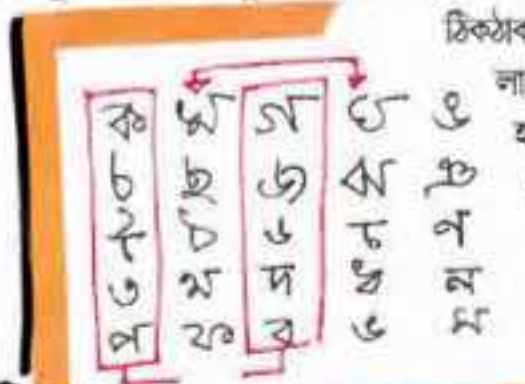 ঠিকঠাক
না
ক খ গ ঘ ঙ
চ ছ জ ঝ ঞ
ট ঠ ড ঢ ণ
ত থ দ ধ ন
প ফ ব ভ ম